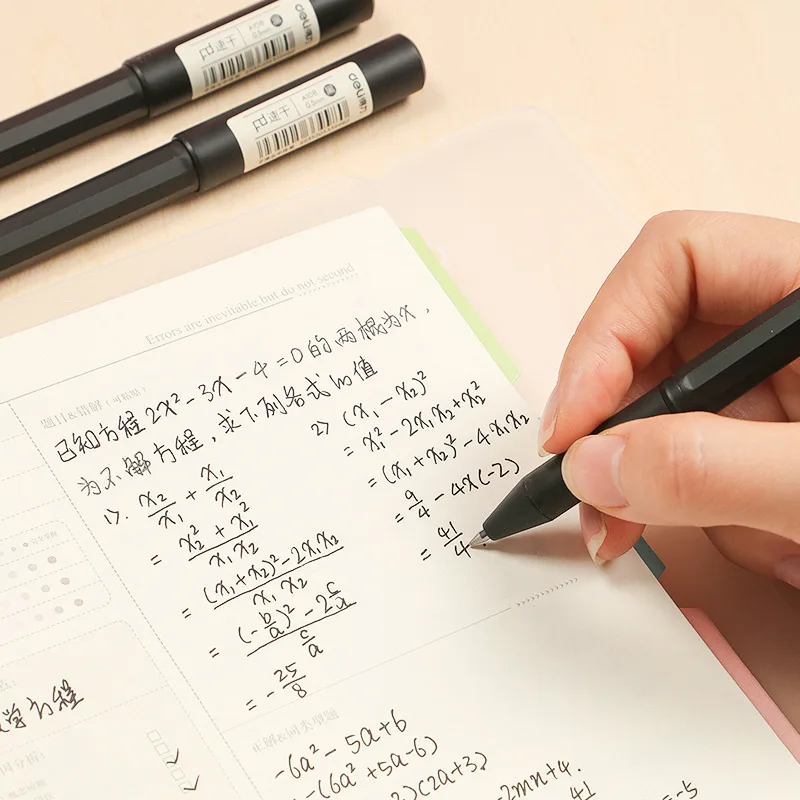 deli得力
速干
A108
0.5mm
deli得力
速干
A108
0.5mm
Errors are inevitable but do not second
题目&错解（可粘贴）
已知方程2x²-3x-4=0的两根为x,
为不解方程,求下列各式的值
1). x₂/x₁ + x₁/x₂
= (x₂² + x₁²)/(x₁x₂)
= ((x₁+x₂)²-2x₁x₂)/(x₁x₂)
= ((-b/a)²-2c/a)/(c/a)
= -25/8
2) (x₁-x₂)²
= x₁²-2x₁x₂+x₂²
= (x₁+x₂)²-4x₁x₂
= 9/4-4x(-2)
= 41/4
学方程
正解&同类型题
-6a²-5a+6
-(6a²+5a-6)
)(2a+3)
-2mn+4.
41
=-5